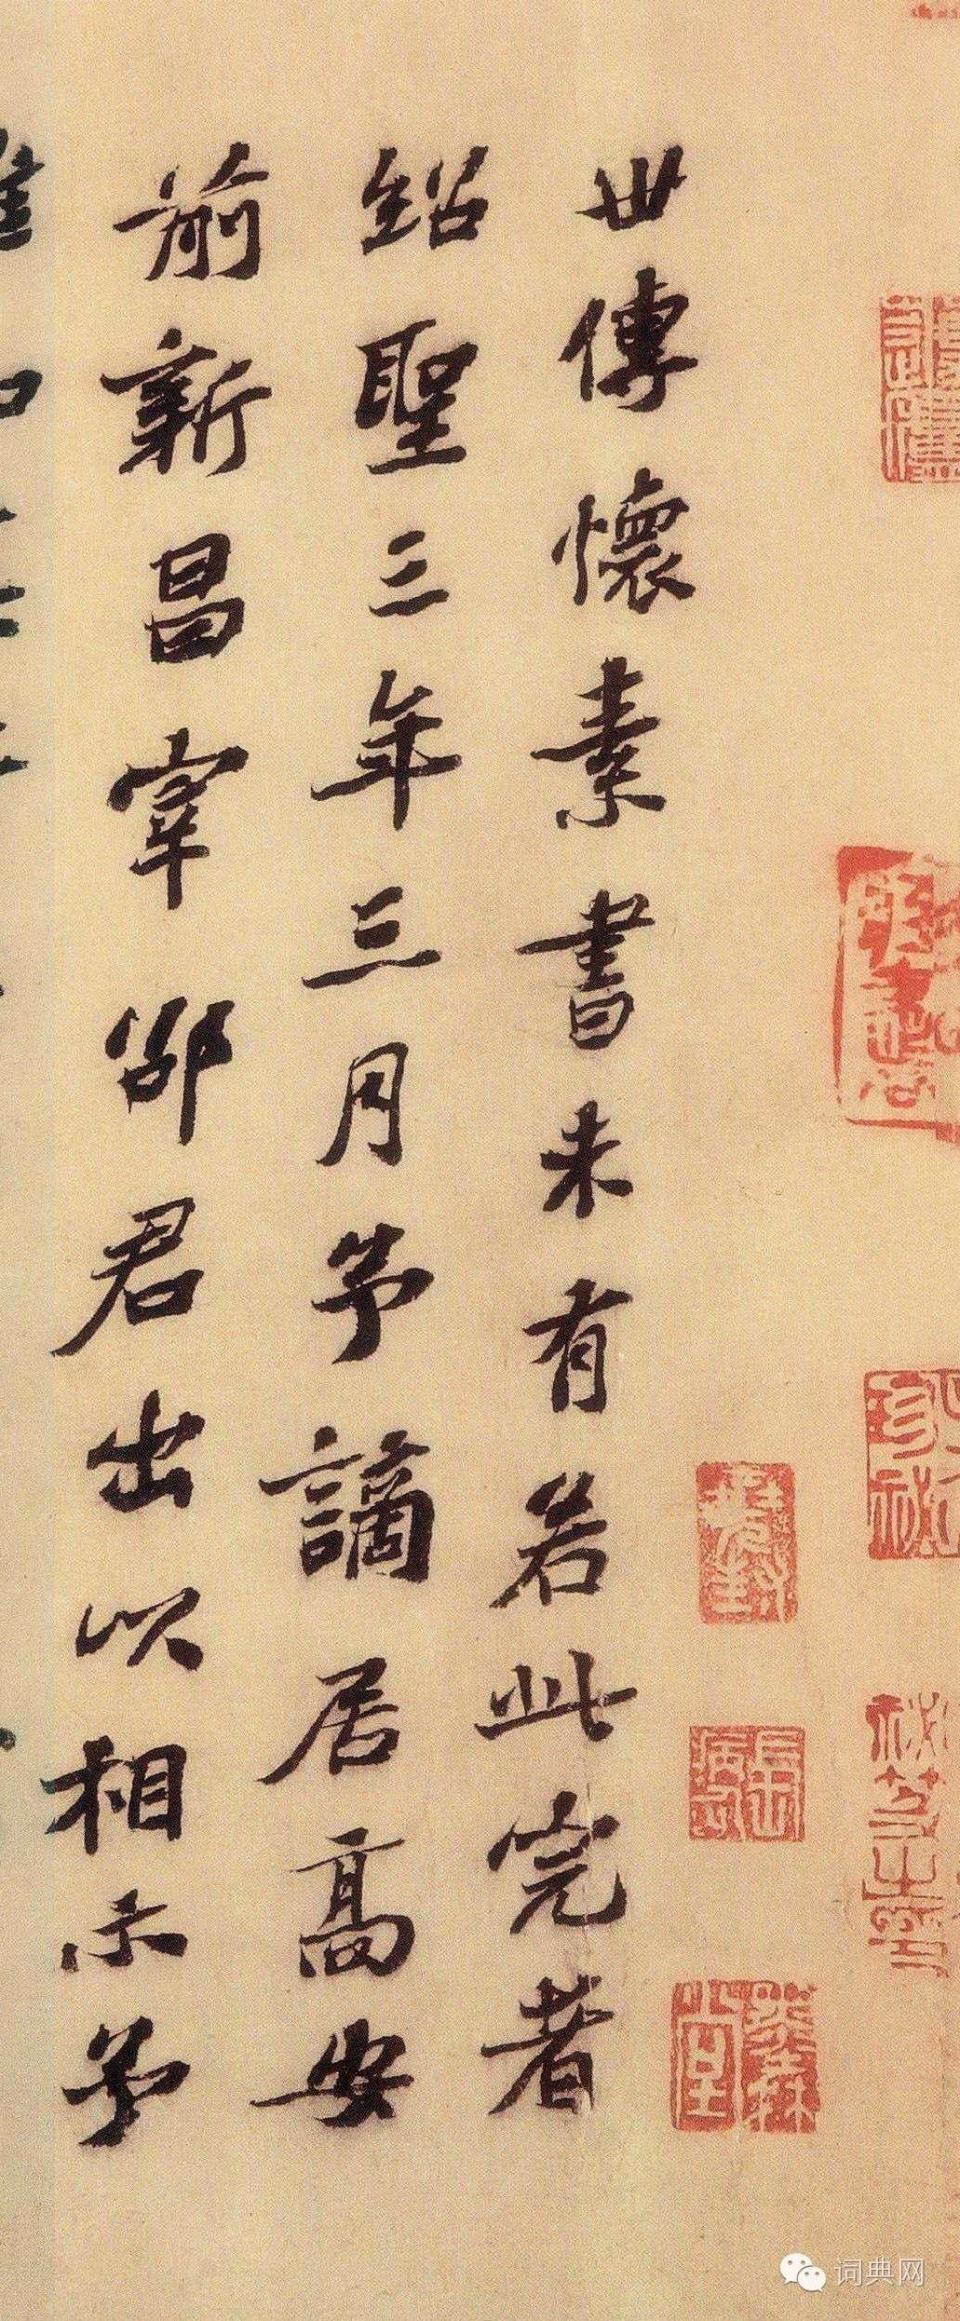 世傳懷素書未有若此完者
紹聖三年三月予謫居高安
前新昌宰邵君出以相示予
詞典网